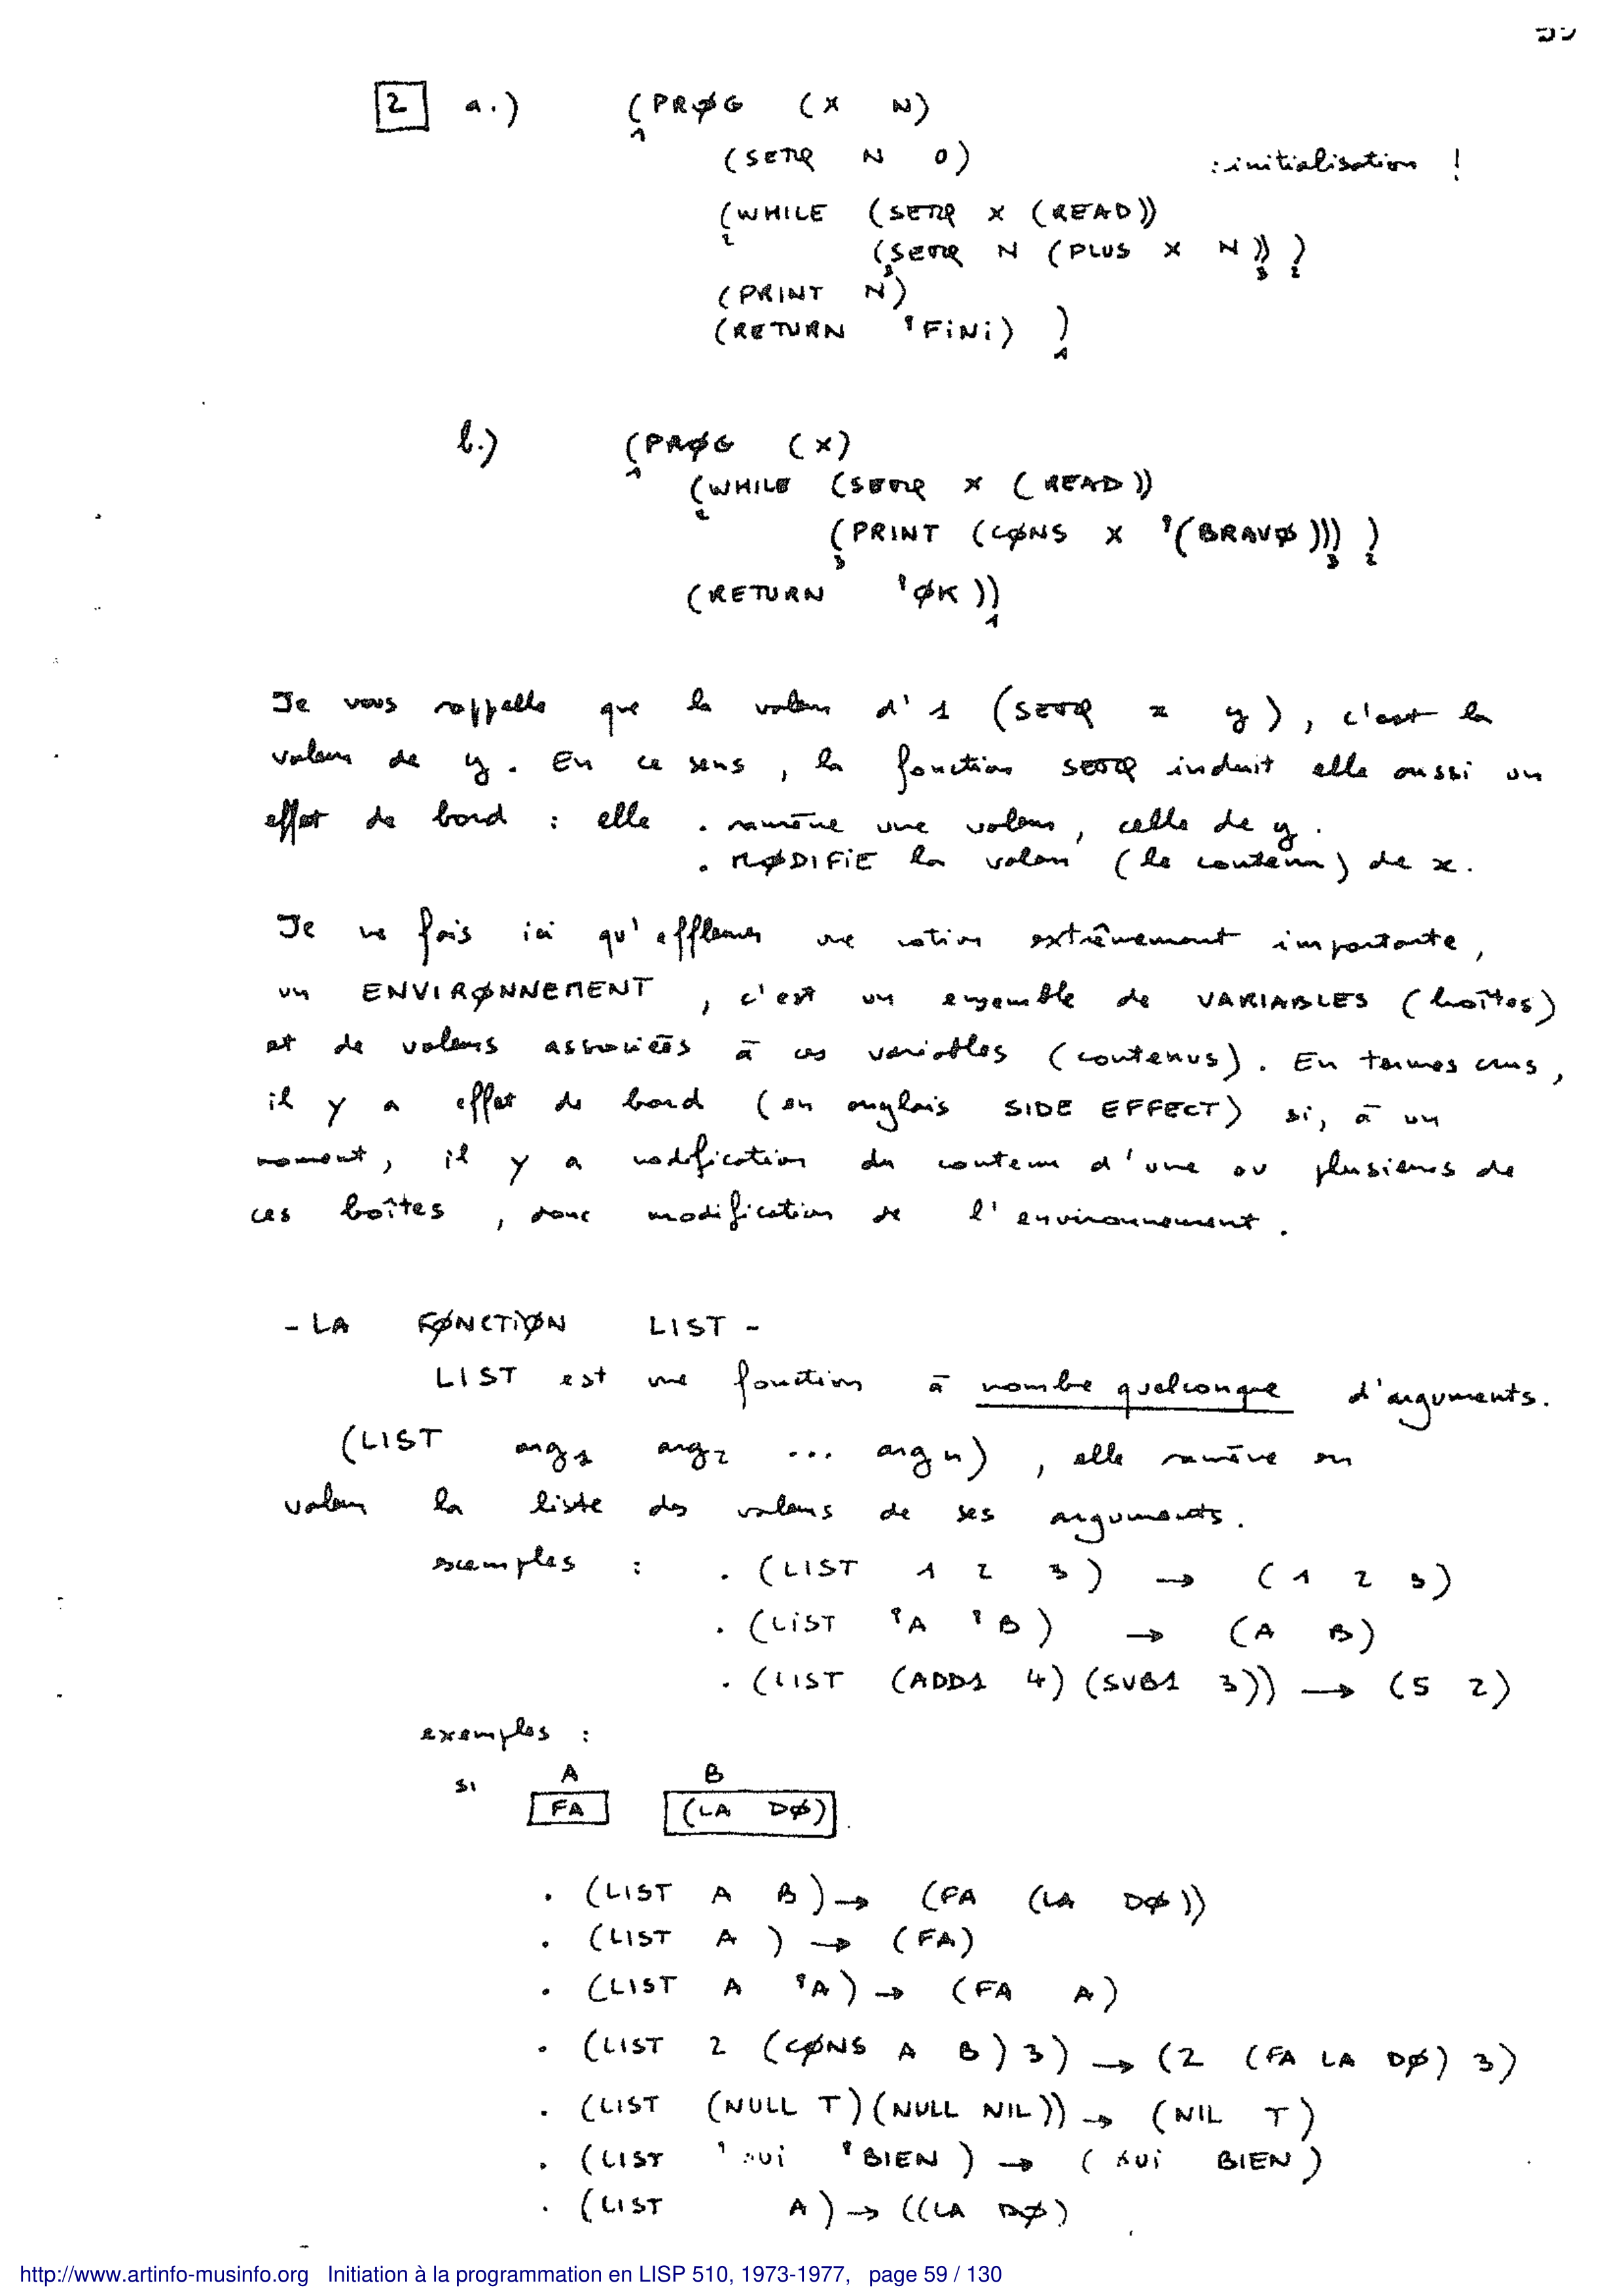 2 a.) (PRØG (X N)
1
(SETQ N 0) : initialisation !
(WHILE (SETQ X (READ))
2
(SETQ N (PLUS X N)) )
3 3 2
(PRINT N)
(RETURN 'FiNi) )
1
b.) (PRØG (X)
1
(WHILE (SETQ X (READ))
2
(PRINT (CØNS X '(BRAVØ))) )
3 3 2
(RETURN 'ØK))
1
Je vous rappelle que la valeur d'1 (SETQ x y), c'est la
valeur de y. En ce sens, la fonction SETQ induit elle aussi un
effet de bord : elle . ramène une valeur, celle de y.
. MØDIFiE la valeur (le contenu) de x.
Je ne fais ici qu'effleurer une notion extrêmement importante,
un ENVIRØNNEMENT, c'est un ensemble de VARIABLES (boîtes)
et de valeurs associées à ces variables (contenus). En termes crus,
il y a effet de bord (en anglais SIDE EFFECT) si, à un
moment, il y a modification du contenu d'une ou plusieurs de
ces boîtes, donc modification de l'environnement.
- LA FØNCTiØN LIST -
LIST est une fonction à nombre quelconque d'arguments.
(LIST arg1 arg2 ... argn), elle ramène en
valeur la liste des valeurs de ses arguments.
exemples : . (LIST 1 2 3) → (1 2 3)
. (LiST 'A 'B) → (A B)
. (LIST (ADD1 4) (SUB1 3)) → (5 2)
exemples :
A B
si FA (LA DØ)
. (LIST A B) → (FA (LA DØ))
. (LIST A ) → (FA)
. (LIST A 'A) → (FA A)
. (LIST 2 (CØNS A B) 3) → (2 (FA LA DØ) 3)
. (LIST (NULL T) (NULL NIL)) → (NIL T)
. (LIST 'ØUi 'BIEN) → (ØUi BIEN)
. (LIST A) → ((LA DØ)
http://www.artinfo-musinfo.org Initiation à la programmation en LISP 510, 1973-1977, page 59 / 130